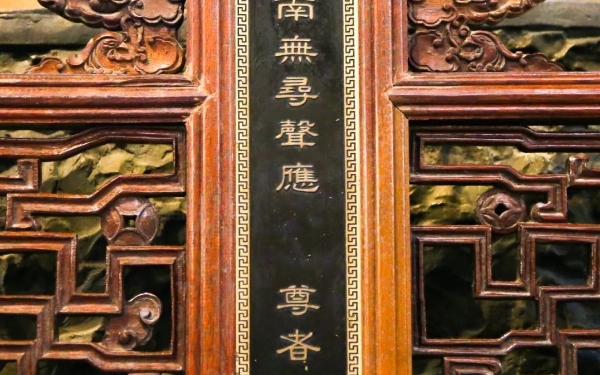 南無尋聲應 尊者